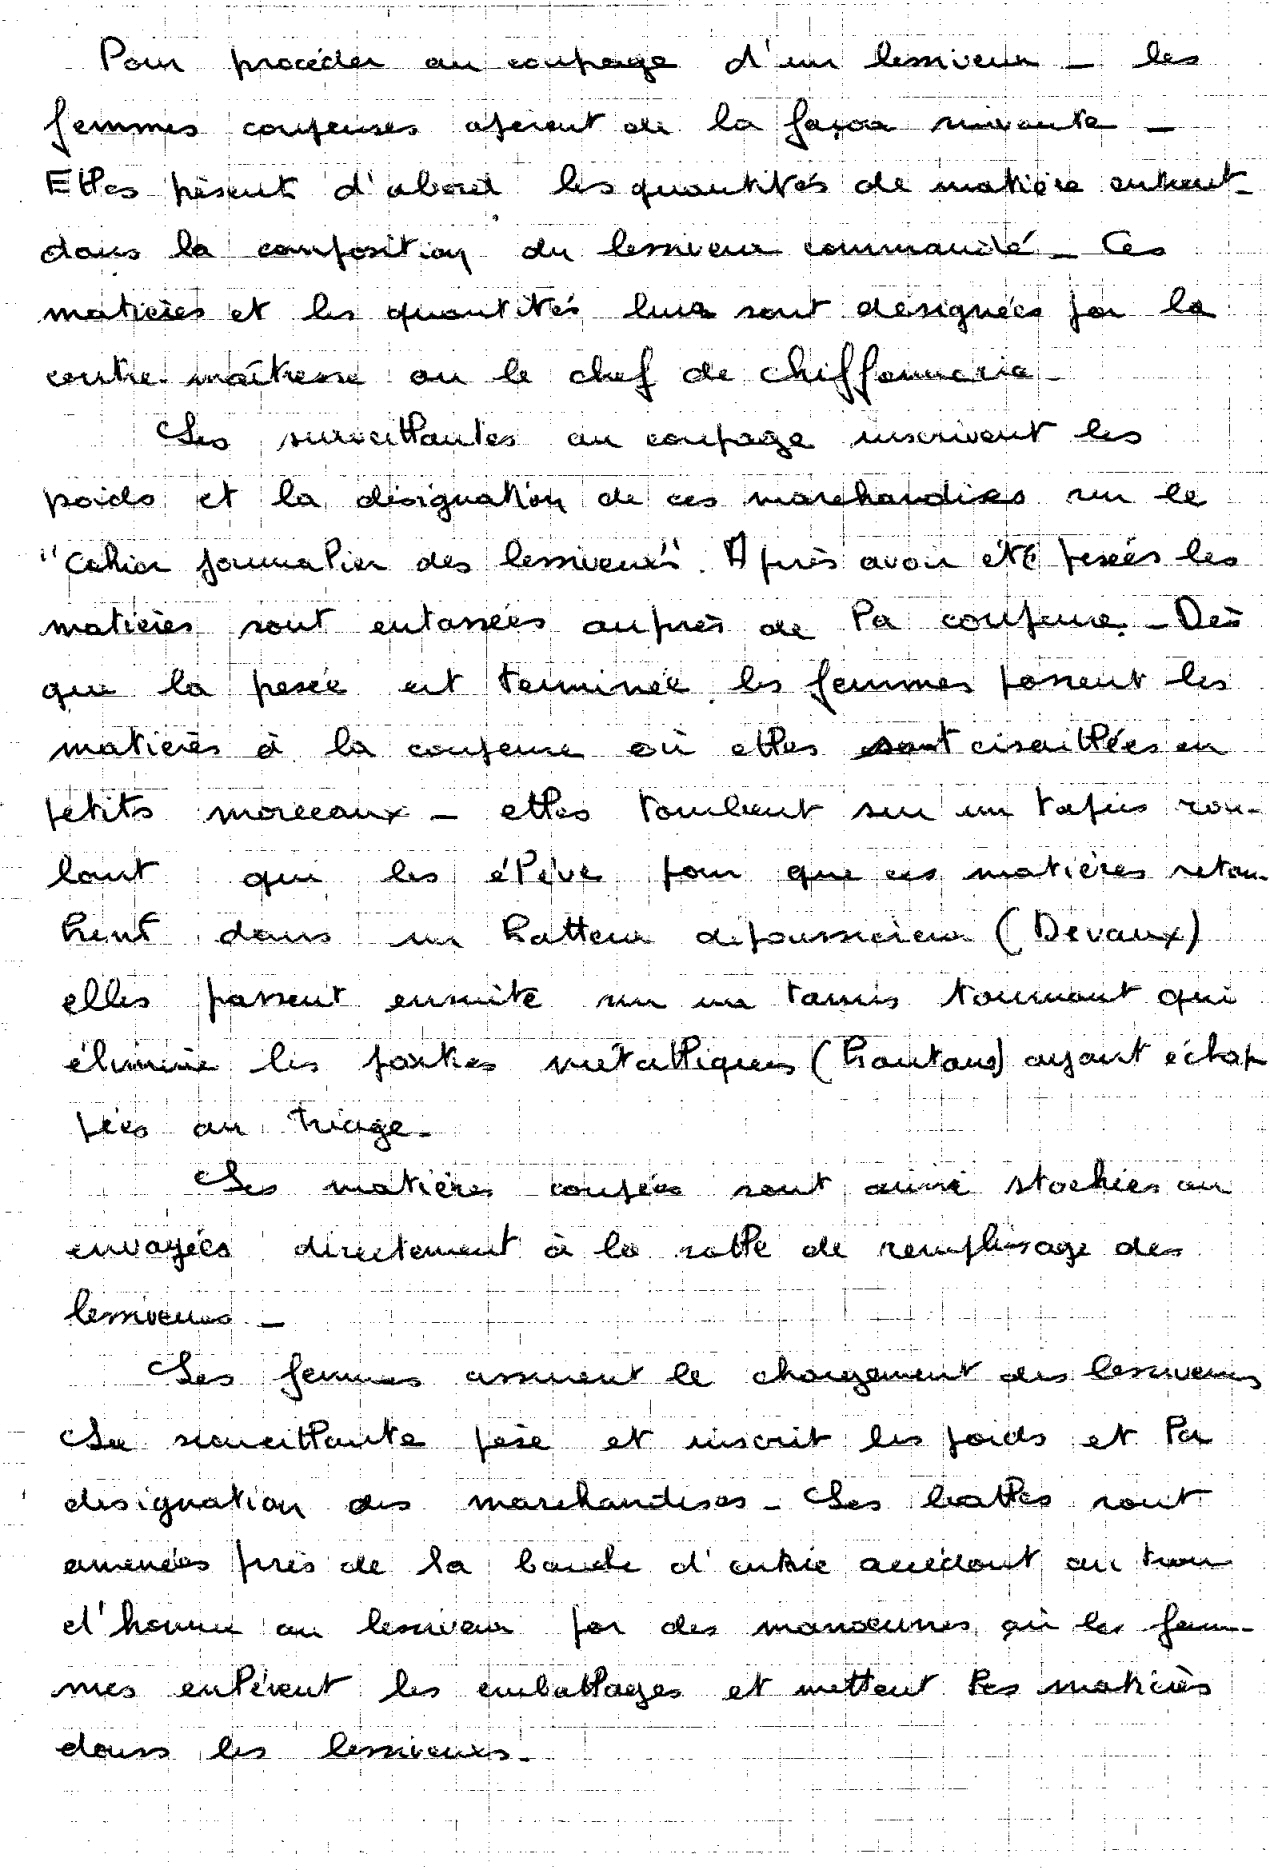 Pour procéder au coupage d'un lessiveur - les
femmes coupeuses opèrent de la façon suivante -
Elles pèsent d'abord les quantités de matière entrant
dans la composition du lessiveur commandé - Ces
matières et les quantités leur sont designées par la
contre-maîtresse ou le chef de chiffonnerie -
Les surveillantes au coupage inscrivent les
poids et la désignation de ces marchandises sur le
"Cahier journalier des lessiveurs". Après avoir été pesées les
matières sont entassées auprès de la coupeuse. - Dès
que la pesée est terminée les femmes passent les
matières à la coupeuse où elles sont cisaillées en
petits morceaux - elles tombent sur un tapis rou-
lant qui les élève pour que ces matières retom-
bent dans un batteur dépoussiereur (Devaux)
elles passent ensuite sur un tamis tournant qui
élimine les parties métalliques (boutons) ayant échap
pées au triage -
Les matières coupées sont ainsi stockées ou
envoyées directement à la salle de remplissage des
lessiveurs -
Les femmes assurent le chargement des lessiveurs
La surveillante pèse et inscrit les poids et la
designation des marchandises - Les balles sont
amenées près de la bouche d'entrée accédant au trou
d'homme au lessiveur par des manœuvres, où les fem-
mes enlèvent les emballages et mettent les matières
dans les lessiveurs -